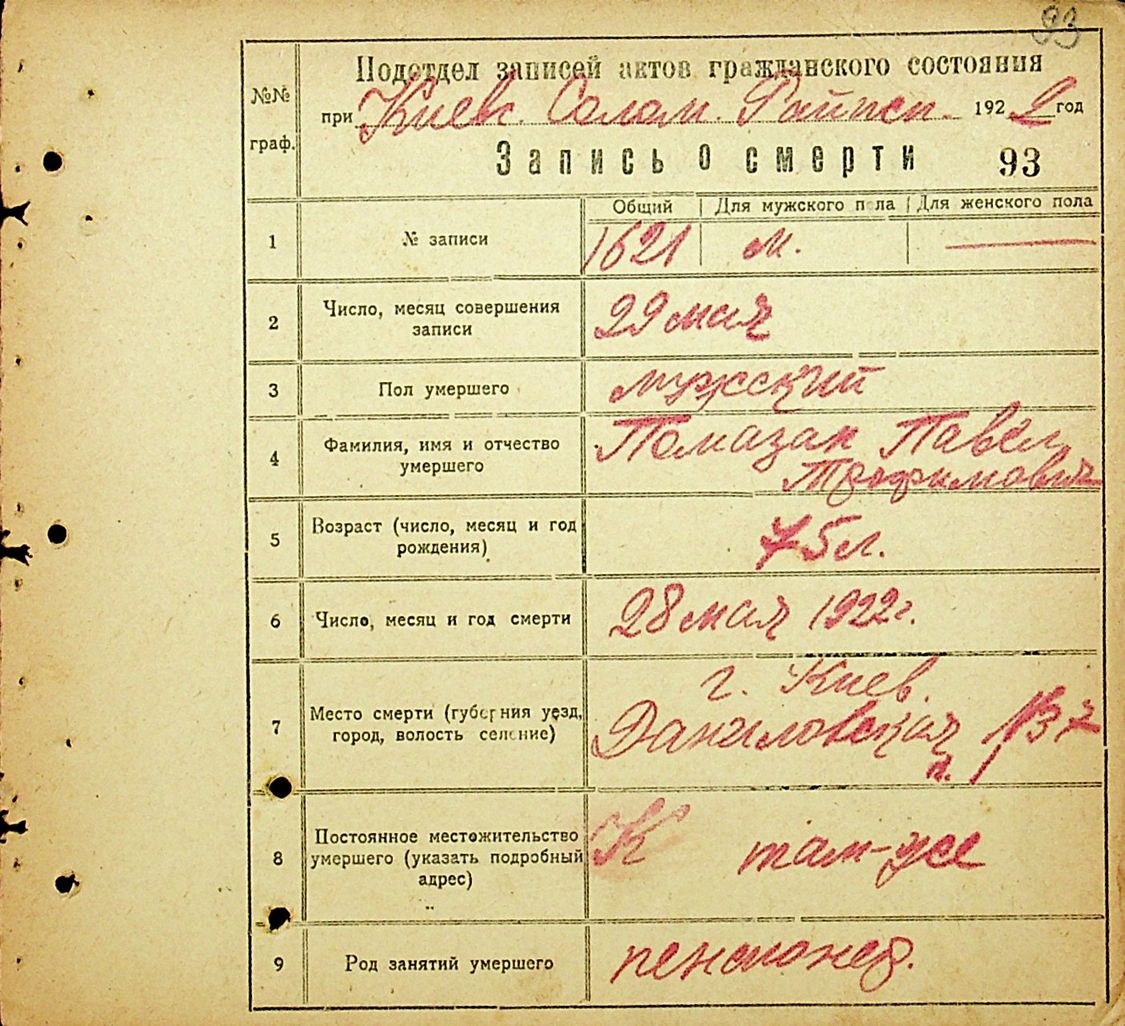 93
Подотдел записей актов гражданского состояния
№№ граф.
при Киевс. Солом. Райисп. 1922 год
Запись о смерти 93
Общий Для мужского пола Для женского пола
1 № записи 1621 м. —
2 Число, месяц совершения
записи
29 мая
3 Пол умершего мужский
4 Фамилия, имя и отчество
умершего
Помазан Павел
Трофимович
5 Возраст (число, месяц и год
рождения)
75 л.
6 Число, месяц и год смерти 28 мая 1922 г.
7 Место смерти (губерния уезд,
город, волость селение)
г. Киев.
Даниловская №37
8 Постоянное местожительство
умершего (указать подробный
адрес)
К там-же
9 Род занятий умершего пенсионер.